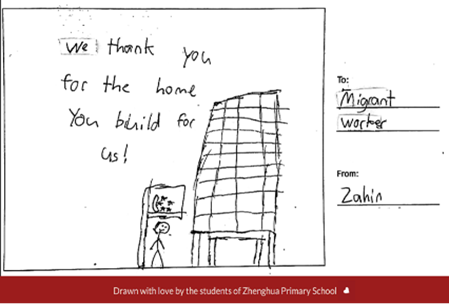 We thank you
for the home
You biuild for
us!
To:
Migrant
worker
From:
Zahin
Drawn with love by the students of Zhenghua Primary School